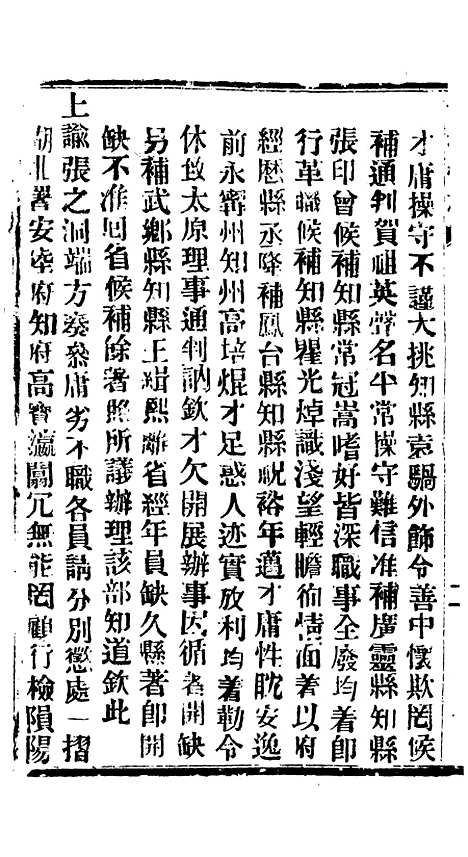 才庸操守不謹大挑知縣袁騄外飾令善中懷欺罔候
補通判賀祖英聲名平常操守難信准補廣靈縣知縣
張印曾候補知縣常冠嵩嗜好皆深職事全廢均着卽
行革職候補知縣瞿光焯識淺望輕瞻徇情面着以府
經歷縣丞降補鳳台縣知縣祝裕年邁才庸性耽安逸
前永寧州知州高培焜才足惑人迹實放利均着勒令
休致太原理事通判訥欽才欠開展辦事因循着開缺
另補武鄉縣知縣王緝熙離省經年員缺久縣著卽開
缺不准回省候補餘著照所議辦理該部知道欽此
上諭張之洞端方奏叅庸劣不職各員請分別懲處一摺
湖北署安陸府知府高寶瀛闒冗無能罔顧行檢隕陽